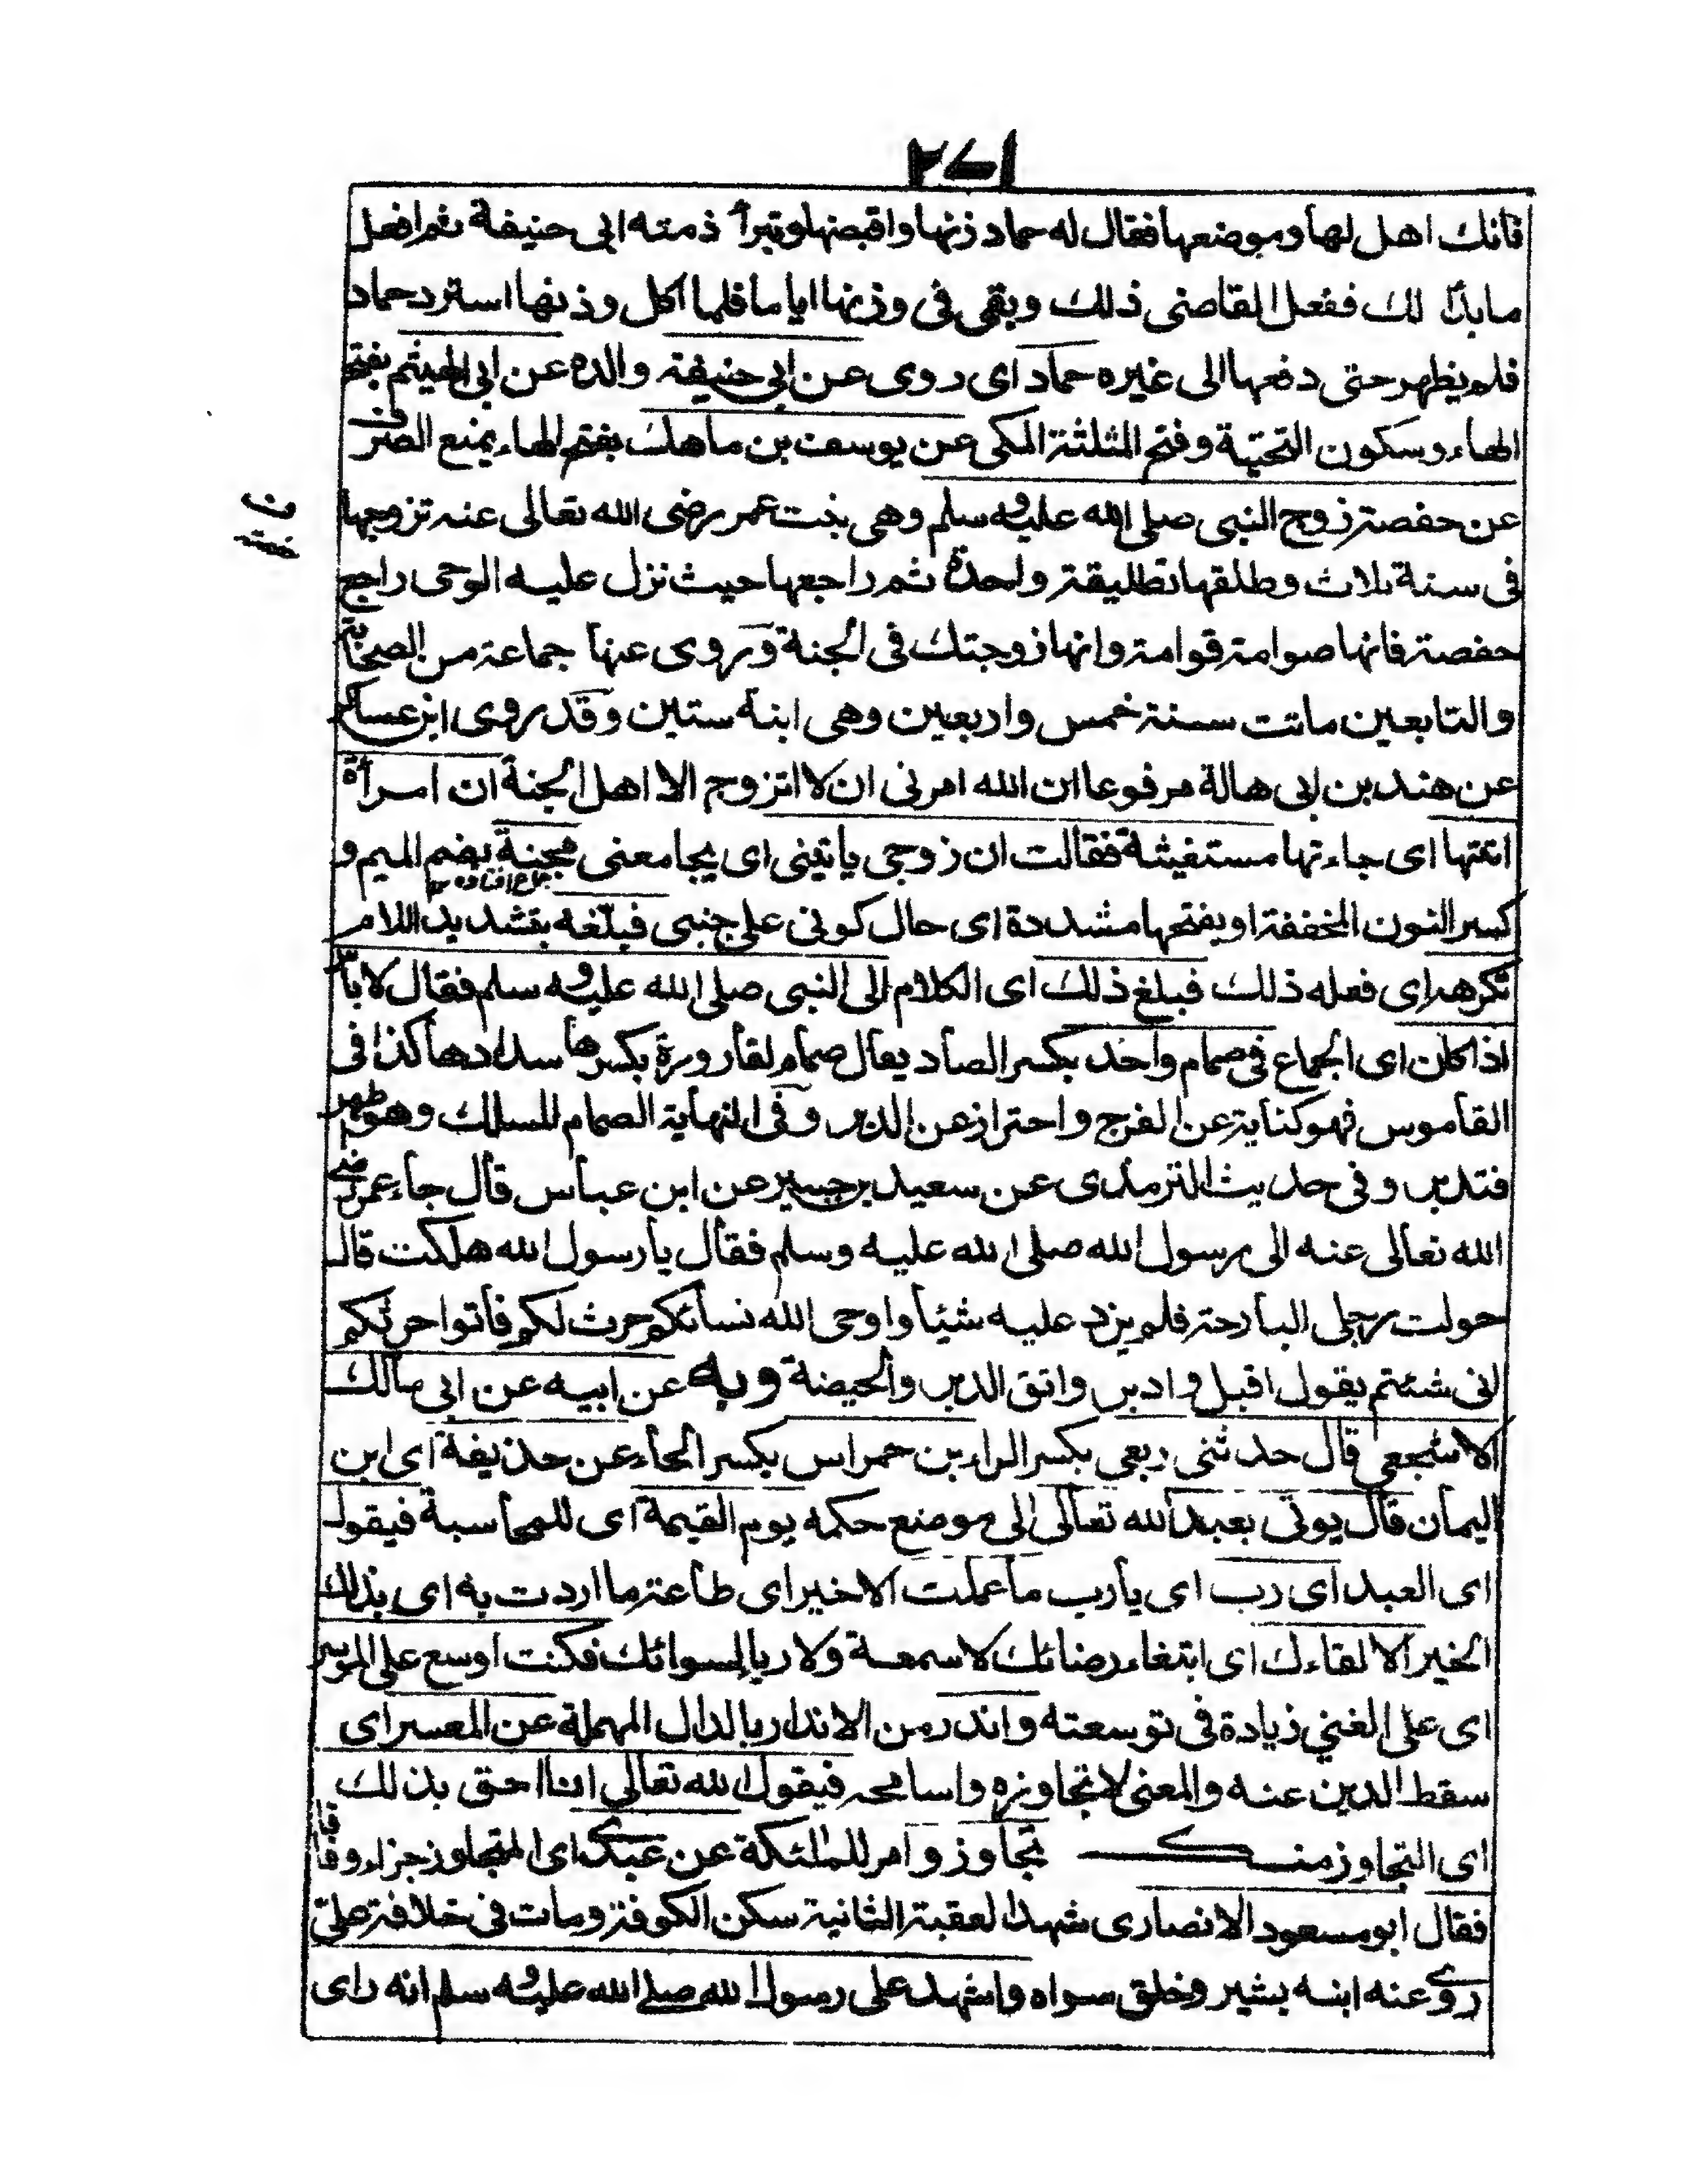 ٢٧١
فانك اهل لها وموضعها فقال له حماد زنها واقبضها وتبرأ ذمته ابى حنيفة ثم افعل
ما بدا لك ففعل القاضى ذلك وبقى فى وزنها اياما فلما اكمل وزنها استرد حماد
فلم يظهر حتى دفعها الى غيره حماد اى روى عن ابى حنيفة والده عن ابى الهيثم بفتح
الهاء وسكون التحتية وفتح المثلثة المكى عن يوسف بن ماهك بفتح الهاء يمنع الصرف
عن حفصة زوج النبى صلى الله عليه وسلم وهى بنت عمر رضى الله تعالى عنه تزوجها
فى سنة ثلاث وطلقها تطليقة واحدة ثم راجعها حيث نزل عليه الوحى راجع
حفصة فانها صوامة قوامة وانها زوجتك فى الجنة وروى عنها جماعة من الصحابة
والتابعين ماتت سنة خمس واربعين وهى ابنة ستين وقد روى ابن عساكر
عن هند بن ابى هالة مرفوعا ان الله امرنى ان لا اتزوج الا اهل الجنة ان امرأة
اتتها اى جاءتها مستغيثة فقالت ان زوجى ياتينى اى يجامعنى مجنبة بضم الميم و
كسر النون المخففة او بفتحها مشددة اى حال كونى على جنبى فبلّغه بتشديد اللام
تكرهه اى فعله ذلك فبلغ ذلك اى الكلام الى النبى صلى الله عليه وسلم فقال لا بأس
اذا كان اى الجماع فى صمام واحد بكسر الصاد يقال صمام لقارورة بكسرها سدادها كذا فى
القاموس فهو كناية عن الفرج واحتراز عن الدبر وفى النهاية الصمام للمسلك وهو ظهر
فتدبر وفى حديث الترمذى عن سعيد بن جبير عن ابن عباس قال جاء عمر رضى
الله تعالى عنه الى رسول الله صلى الله عليه وسلم فقال يا رسول الله هلكت قال
حولت رجلى البارحة فلم يزد عليه شيئا واوحى الله نسائكم حرث لكم فأتوا حرثكم
انى شئتم يقول اقبل وادبر واتق الدبر والحيضة وبه عن ابيه عن ابى مالك
الاشجعى قال حدثنى ربعى بكسر الراء بن حمراس بكسر الحاء عن حذيفة اى ابن
اليمان قال يوتى بعبد الله تعالى الى موضع حكمه يوم القيمة اى للمحاسبة فيقول
اى العبد اى رب اى يارب ما عملت الا خير اى طاعة ما اردت به اى بذلك
الخير الا لقاءك اى ابتغاء رضائك لا سمعة ولا ريا لسوائك فكنت اوسع على الموسر
اى على الغنى زيادة فى توسعته واندر من الاندار بالدال المهملة عن المعسر اى
سقط الدين عنه والمعنى لا تجاوزه واسامحه فيقول الله تعالى انا احق بذلك
اى التجاوز منك تجاوزوا امر للملئكة عن عبدى اى المتجاوز جزاء وفاقا
فقال ابو مسعود الانصارى شهد العقبة الثانية سكن الكوفة ومات فى خلافة علىّ
روى عنه ابنه بشير وخلق سواه واشهد على رسول الله صلى الله عليه وسلم انه راى